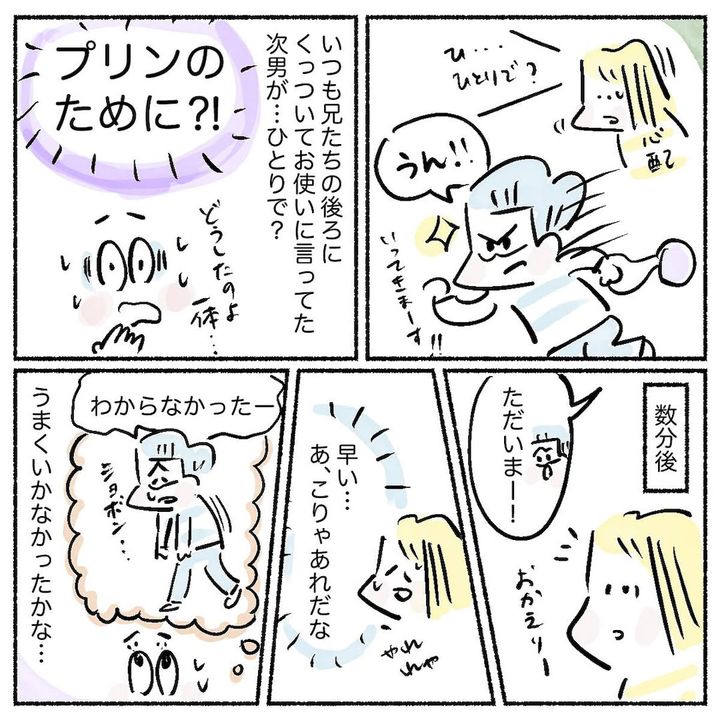 ひ・・・
ひとりで？
心配
うん!!
いってきまーす!!
いつも兄たちの後ろに
くっついてお使いに言ってた
次男が…ひとりで？
プリンの
ために?!
どうしたのよ
一体…
数分後
ただいまー！
おかえりー
早い…
あ、こりゃあれだな
やれ
れや
わからなかったー
ショボン…
うまくいかなかったかな…